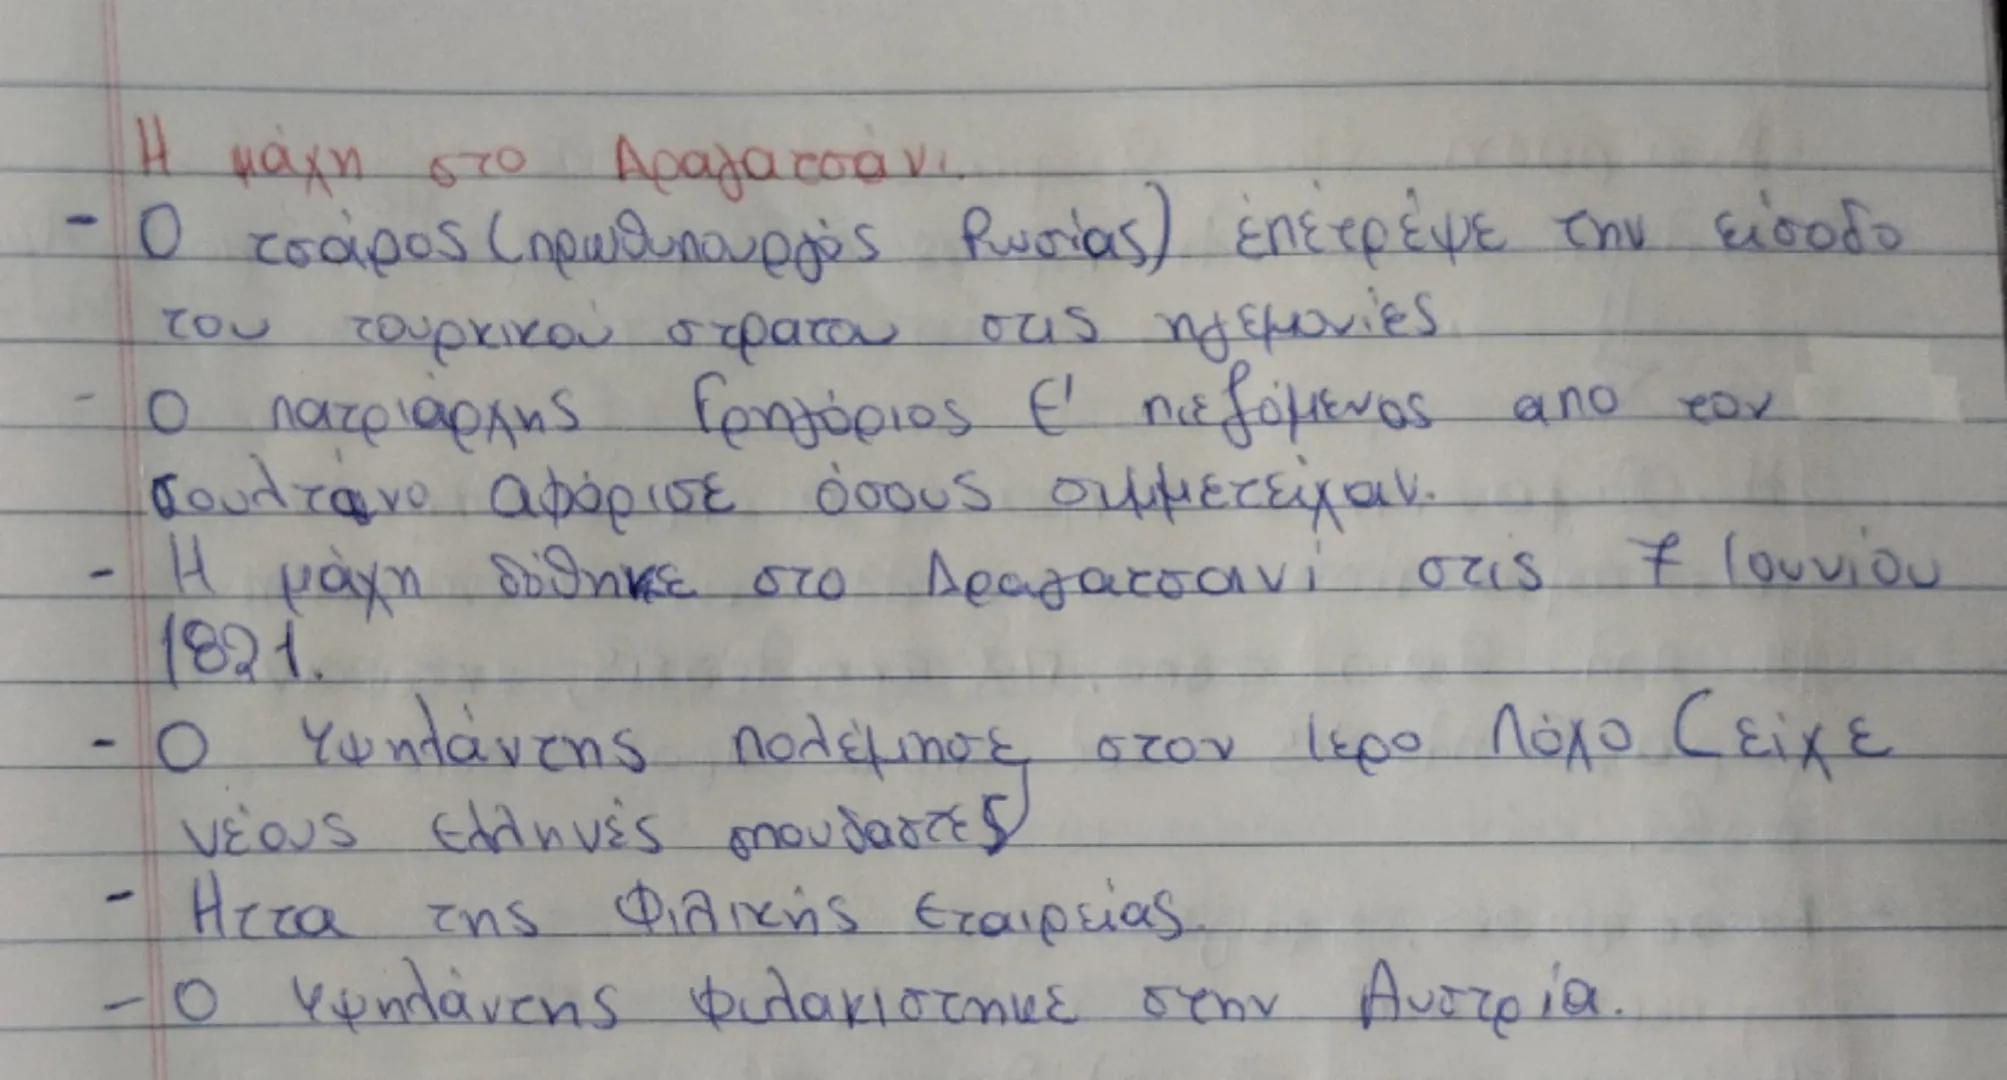 Η μάχη στο Δραγατσάνι.
- Ο τσάρος (πρωθυπουργός Ρωσίας) έπέτρέψε την είσοδο
του τουρκικού στρατου στις ηγεμονίες
- Ο πατριάρχης Γρηγόριος Ε' πιεζόμενος απο τον
σουλτάνο αφόρισε όσους συμμετείχαν.
- Η μάχη δόθηκε στο Δραγατσανί στις 7 Ιουνίου
1821.
- Ο Υψηλάντης πολέμησε στον Ιερο Λόχο (είχε
νέους Ελληνές σπουδαστες)
- Ηττα της Φιλικής Εταιρείας.
- Ο Υψηλάντης φυλακιστηκε στην Αυστρία.